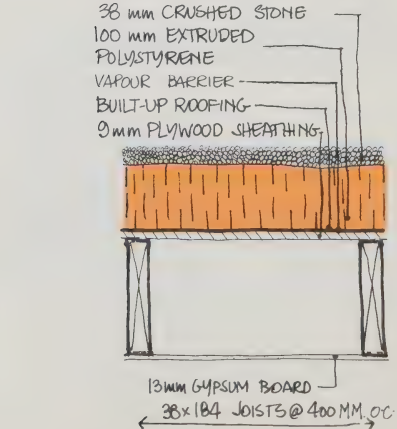 38 mm CRUSHED STONE
100 mm EXTRUDED
POLYSTYRENE
VAPOUR BARRIER
BUILT-UP ROOFING
9mm PLYWOOD SHEATHING
13mm GYPSUM BOARD
38x184 JOISTS @ 400MM. OC.